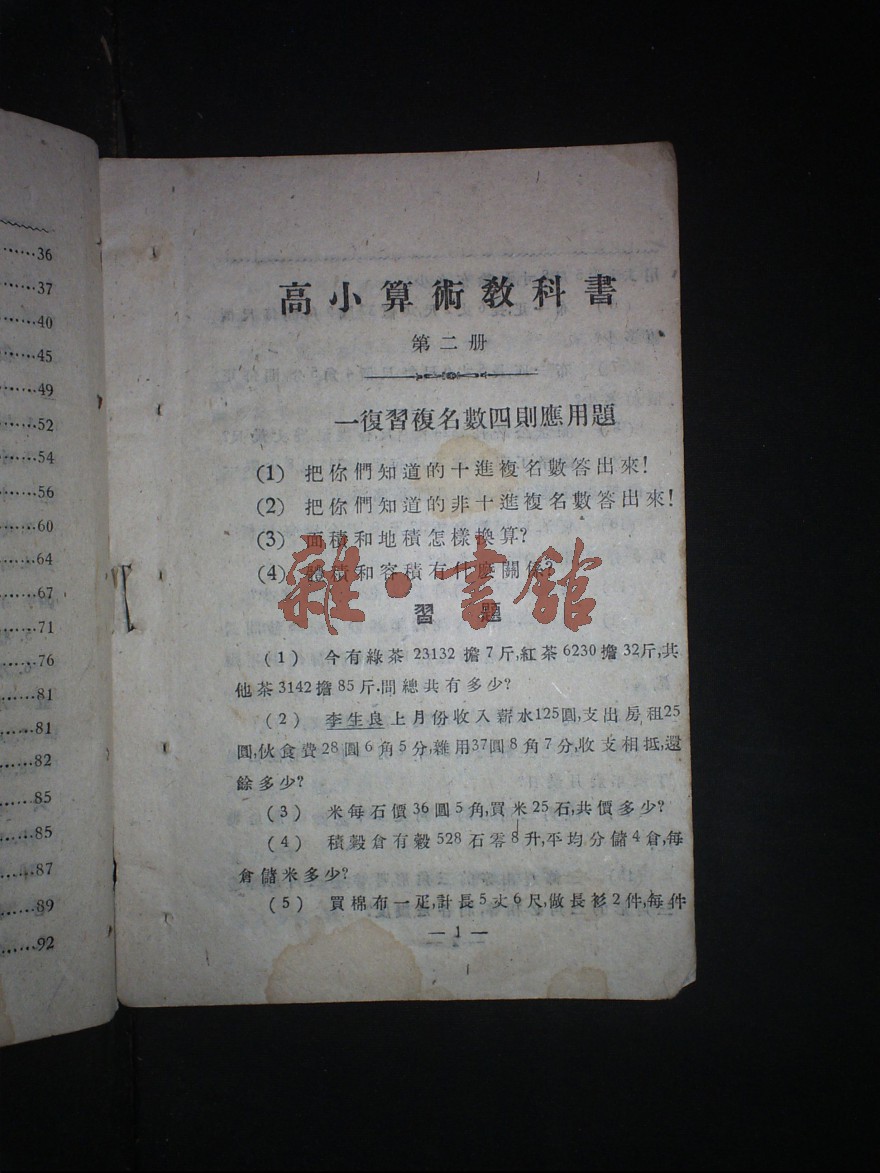 ……36
……37
……40
……45
……49
……52
……54
……56
……60
……64
……67
……71
……76
……81
……81
……82
……85
……85
……87
……89
……92
高小算術教科書
第二册
一復習複名數四則應用題
(1) 把你們知道的十進複名數答出來!
(2) 把你們知道的非十進複名數答出來!
(3) 面積和地積怎樣換算?
(4) 體積和容積有什麽關係?
雜·書館
習 題
(1) 今有綠茶23132擔7斤,紅茶6230擔32斤,其
他茶3142擔85斤.問總共有多少?
(2) 李生良上月份收入薪水125圓,支出房租25
圓,伙食費28圓6角5分,雜用37圓8角7分,收支相抵,還
餘多少?
(3) 米每石價36圓5角,買米25石,共價多少?
(4) 積穀倉有穀528石零8升,平均分儲4倉,每
倉儲米多少?
(5) 買棉布一疋,計長5丈6尺,做長衫2件,每件
— 1 —